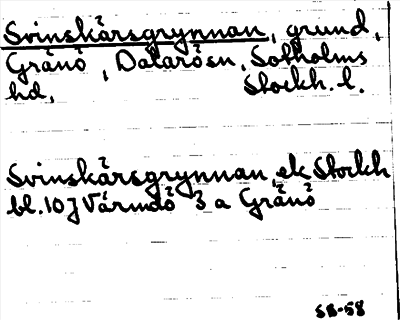 Svinskärsgrynnan, grund,
Gränö, Dalarösen, Sotholms
hd, Stockh. l.
Svinskärsgrynnan ek Stockh
bl. 10 J Värmdö 3 a Gränö
SB-58